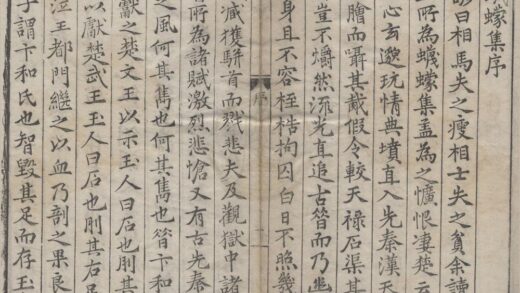 蠛蠓集序
曰相馬失之瘦相士失之貧余讀
所為蠛蠓集盖為之懭悢凄楚云
心玄邈玩情典墳直入先秦漢天
膾而囁其胾假令較天禄石渠其
豈不爝然流光直追古昔而乃幽
身且不容桎梏拘囚白日不照幾
序
臧獲駢首而戮悲夫及觀獄中諸
所為諸賦激烈悲愴又有古先秦
之風何其雋也何其雋也昔卞和
獻之楚文王以示玉人曰石也刖其
以獻楚武王玉人曰石也刖其右足
泣王都門繼之以血乃剖之果良
子謂卞和氏也智毀其足而存玉